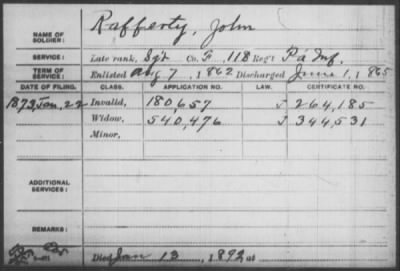 NAME OF SOLDIER: Rafferty, John
SERVICE: Late rank, Sgt Co. F, 118 Reg't Pa Inf.
TERM OF SERVICE: Enlisted Aug 7, 1862 Discharged June 1, 1865
DATE OF FILING. CLASS. APPLICATION NO. LAW. CERTIFICATE NO.
1873, Jan, 22 Invalid, 180,657 J 264,185
Widow, 540,476 J 344,531
Minor,
ADDITIONAL SERVICES:
REMARKS:
Died Jan 13, 1892 at